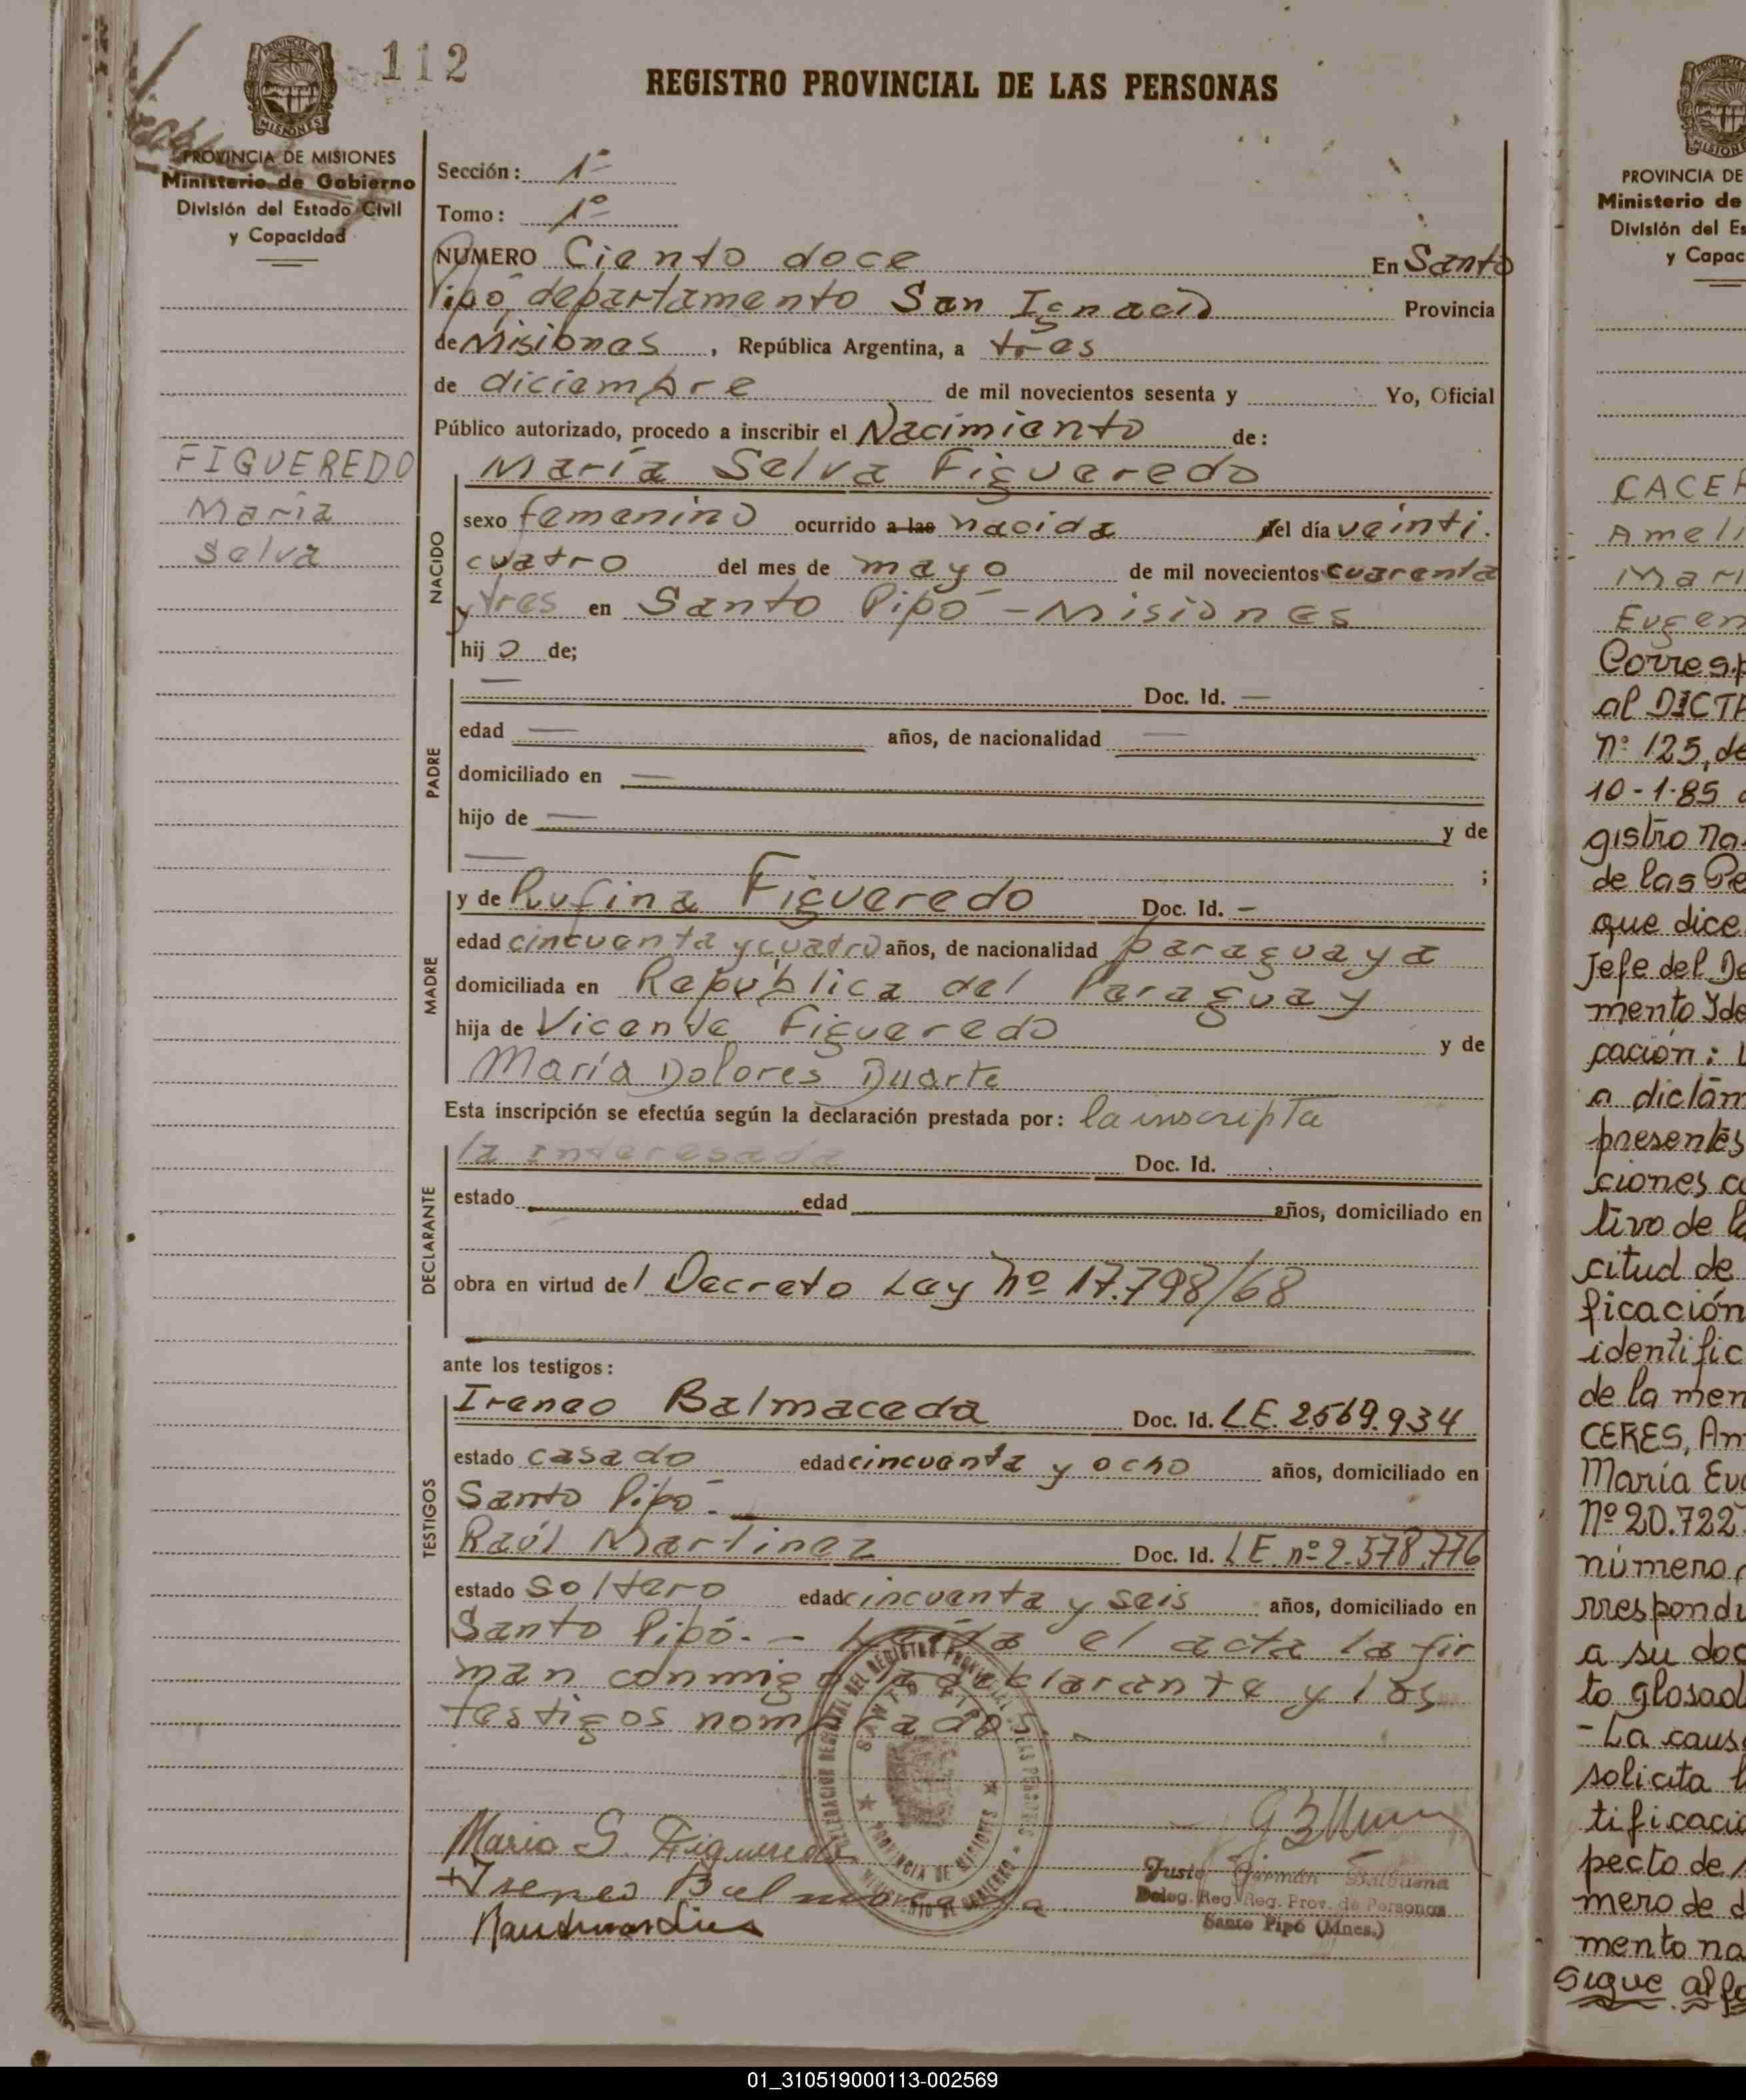 112
REGISTRO PROVINCIAL DE LAS PERSONAS
PROVINCIA DE MISIONES
Ministerio de Gobierno
División del Estado Civil
y Capacidad
Sección: 1ª
Tomo: 1º
NUMERO Ciento doce En Santo
Pipó, departamento San Ignacio Provincia
de Misiones, República Argentina, a tres
de diciembre de mil novecientos sesenta y Yo, Oficial
Público autorizado, procedo a inscribir el Nacimiento de:
FIGUEREDO
María
Selva
NACIDO
María Selva Figueredo
sexo femenino ocurrido a las nacida del día veinti.
cuatro del mes de mayo de mil novecientos cuarenta
y tres en Santo Pipó - Misiones
hij o de;
PADRE
— Doc. Id. —
edad — años, de nacionalidad —
domiciliado en —
hijo de — y de
— ;
MADRE
y de Rufina Figueredo Doc. Id. -
edad cincuenta y cuatro años, de nacionalidad paraguaya
domiciliada en República del Paraguay
hija de Vicente Figueredo y de
María Dolores Duarte
Esta inscripción se efectúa según la declaración prestada por: la inscripta
DECLARANTE
la interesada Doc. Id.
estado edad años, domiciliado en
obra en virtud del Decreto Ley Nº 17.798/68
ante los testigos:
TESTIGOS
Ireneo Balmaceda Doc. Id. L.E. 2.569.934
estado casado edad cincuenta y ocho años, domiciliado en
Santo Pipó.
Raúl Martinez Doc. Id. L E nº 2.578.776
estado soltero edad cincuenta y seis años, domiciliado en
Santo Pipó. - Leída el acta la fir
man conmigo la declarante y los
testigos nombrados. -
DELEGACION REGIONAL DEL REGISTRO PROVINCIAL DE LAS PERSONAS
SANTO PIPO
PROVINCIA DE MISIONES
MINISTERIO DE GOBIERNO
Maria S. Figueredo
Ireneo Balmaceda
Justo Germán Balbuena
Deleg. Reg. Reg. Prov. de Personas
Santo Pipó (Mnes.)
MISIONES
PROVINCIA DE
Ministerio de
División del Es
y Capac
CACER
Ameli
Marí
Eugen
Corresp
al DICTA
nº 125, de
10-1-85
gistro Na
de las Pe
que dice
Jefe del De
mento Ide
cación:
a dictám
presentes
ciones co
tivo de la
citud de
ficación
identific
de la men
CERES, Am
María Eu
Nº 20.722
número
rrespondi
a su doc
to glosad
- La caus
solicita l
tificació
pecto de
mero de d
mento na
Sigue al fo
01_310519000113-002569